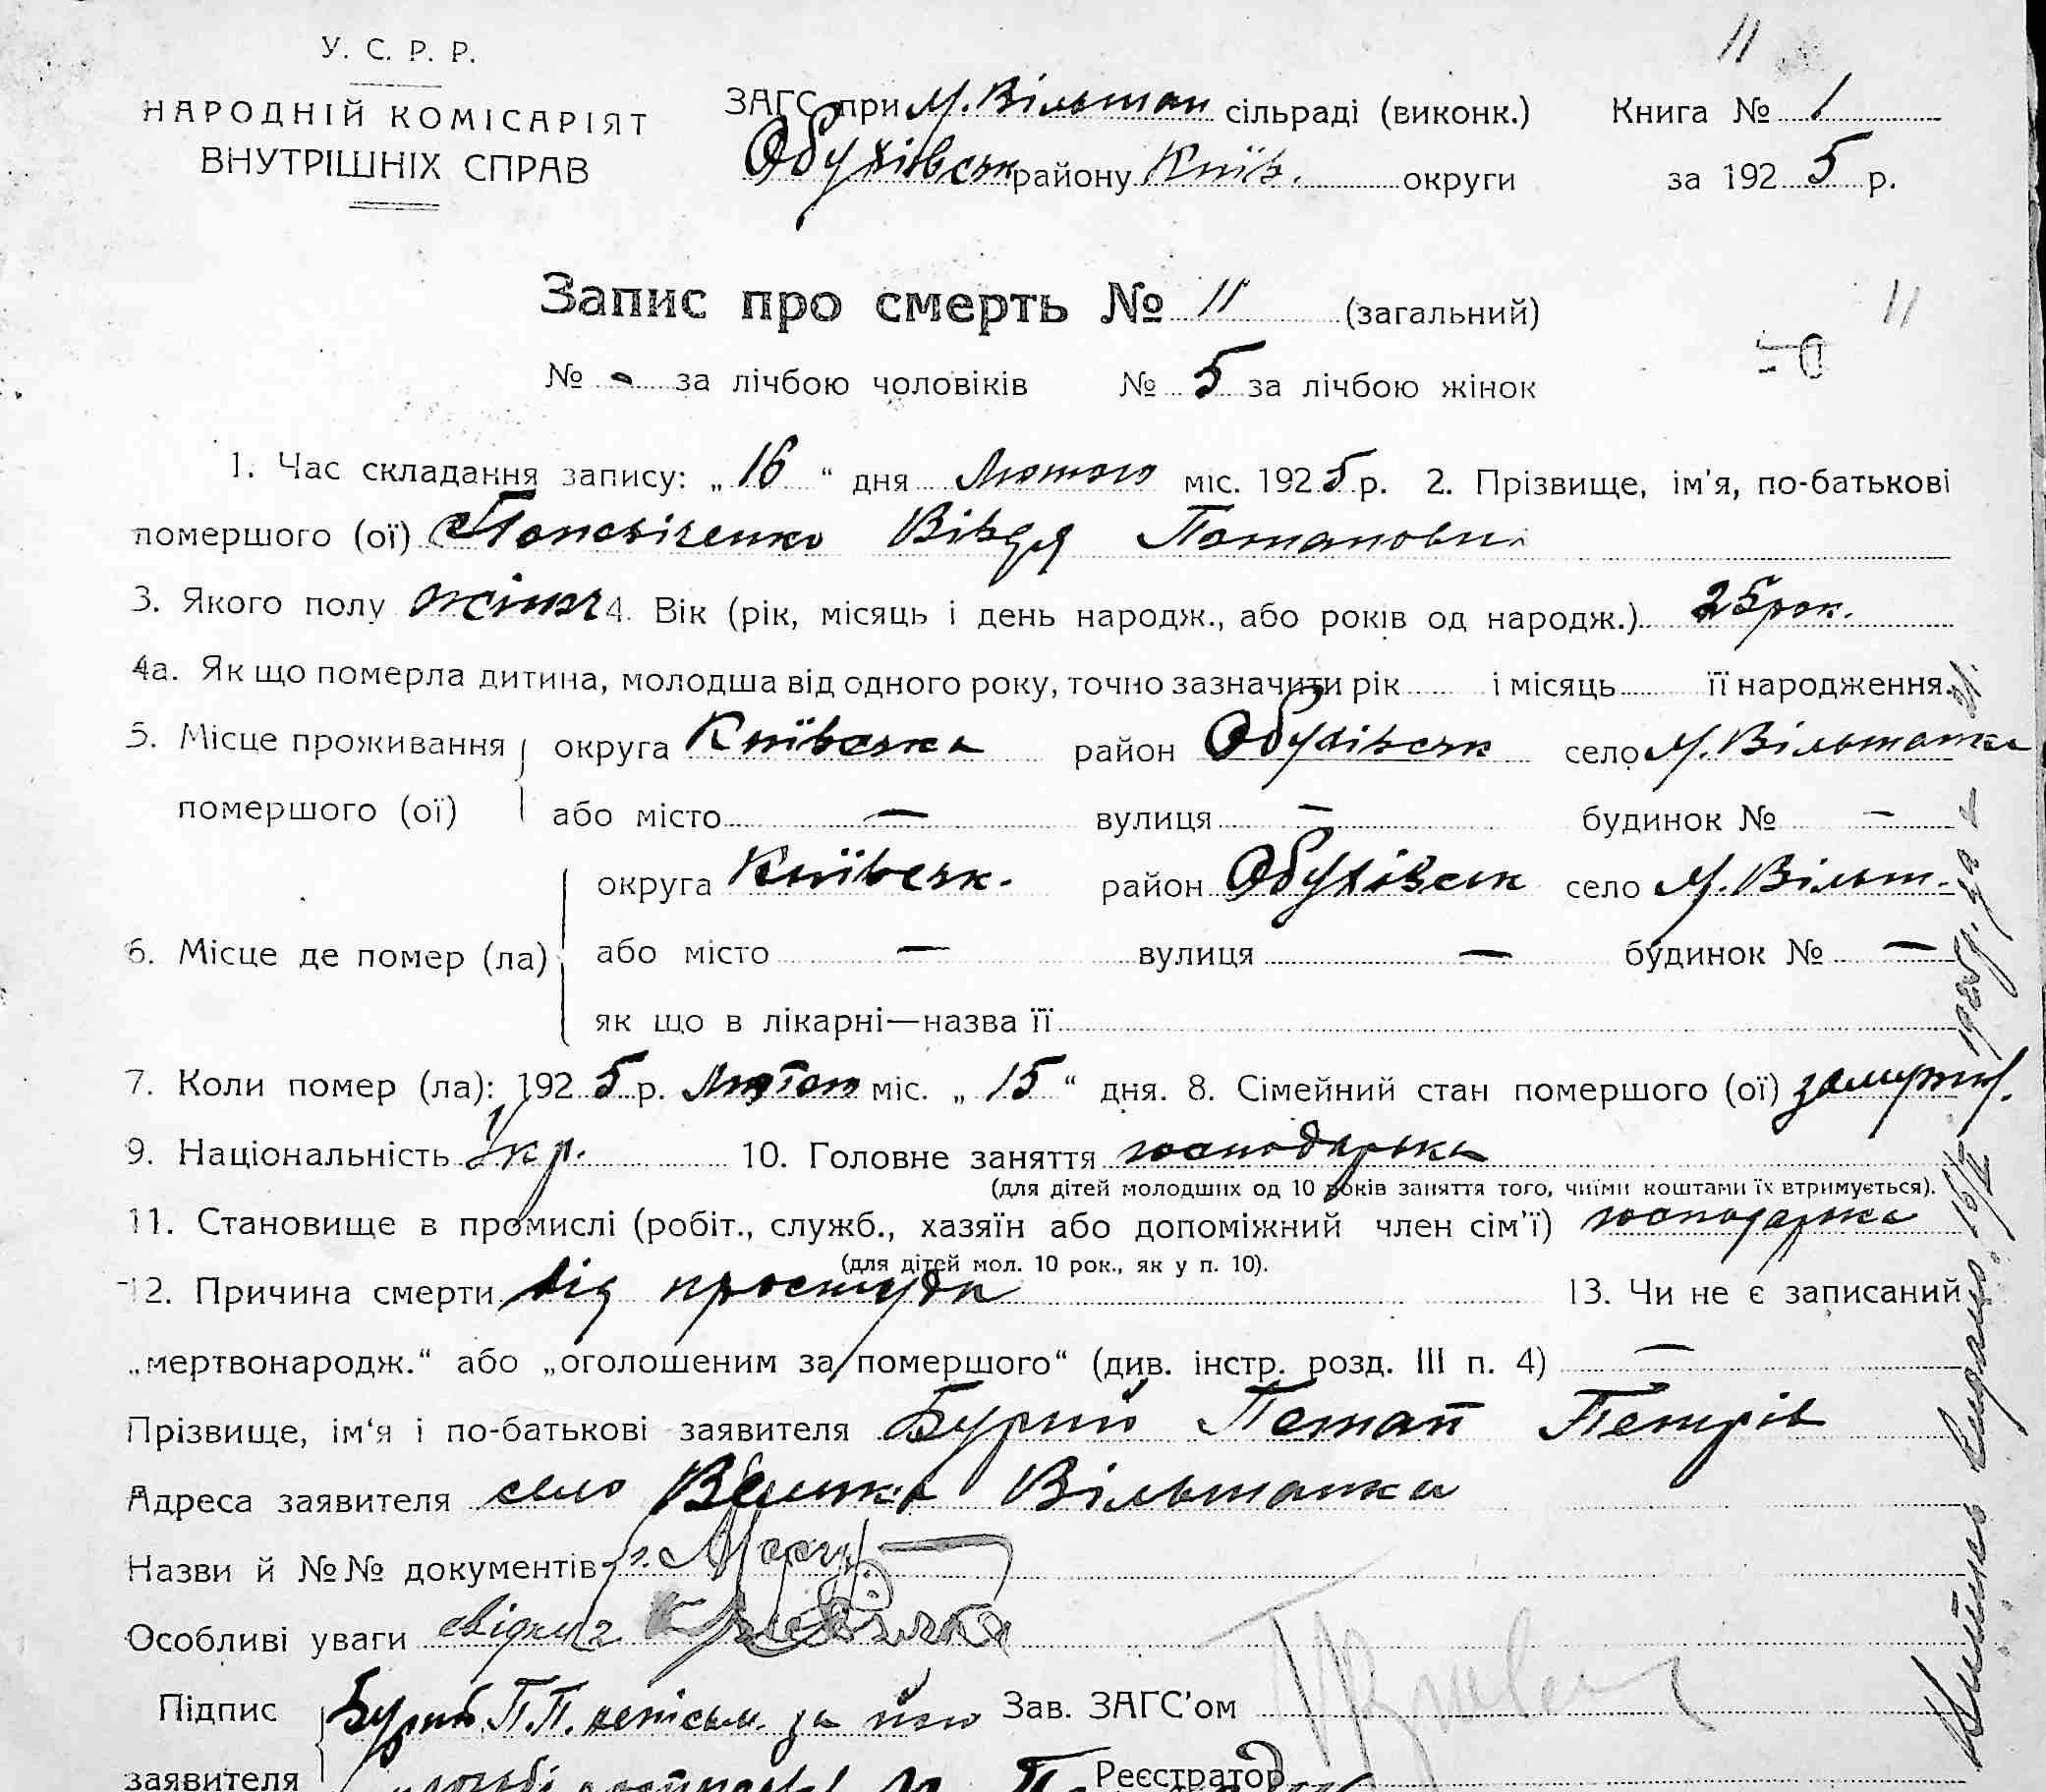 11
У. С. Р. Р.
НАРОДНІЙ КОМІСАРІЯТ
ВНУТРІШНІХ СПРАВ
ЗАГС при М. Вільшан сільраді (виконк.)
Обухівськ району Київ. округи
Книга № 1
за 1925 р.
Запис про смерть № 11 (загальний)
11
№ - за лічбою чоловіків № 5 за лічбою жінок
1. Час складання запису: „16“ дня Лютого міс. 1925 р. 2. Прізвище, ім'я, по-батькові
помершого (ої) Вівдя Потаповн
3. Якого полу жіноч 4. Вік (рік, місяць і день народж., або років од народж.) 25 рок.
4а. Як що померла дитина, молодша від одного року, точно зазначити рік і місяць її народження.
5. Місце проживання округа Київська район Обухівськ село М. Вільшанка
помершого (ої) або місто — вулиця — будинок № —
округа Київськ. район Обухівськ село М. Вільш.
6. Місце де помер (ла) або місто — вулиця — будинок № —
як що в лікарні—назва її
7. Коли помер (ла): 1925 р. Лютого міс. „15“ дня. 8. Сімейний стан помершого (ої) замужн.
9. Національність Укр. 10. Головне заняття господарька
(для дітей молодших од 10 років заняття того, чиїми коштами їх втримується).
11. Становище в промислі (робіт., служб., хазяїн або допоміжний член сім'ї) господарька
(для дітей мол. 10 рок., як у п. 10).
12. Причина смерти від простуди 13. Чи не є записаний
„мертвонародж.“ або „оголошеним за помершого“ (див. інстр. розд. III п. 4) —
Прізвище, ім'я і по-батькові заявителя Бурий Потап Петрів
Адреса заявителя село Велика Вільшанка
Назви й №№ документів
Особливі уваги
Підпис Бурий П.П. непісьм. за його Зав. ЗАГС'ом
заявителя Реєстратор